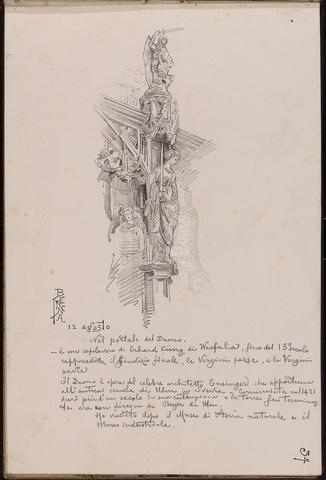 BERNA
12 agosto
Nel portale del Duomo.
— è un capolavoro di Erhard Küng, di Wesfalia, fine del 15º secolo
rappresenta il Giudizio finale, le Vergini pazze, e le Vergini
savie
Il Duomo è opera del celebre architetto Ensinger che apparteneva
all'antica scuola di Ulm in Svevia. Cominciata nel 1421
durò più d'un secolo la sua costruzione e la torre fu terminata
da ora con disegni di Beyer di Ulm.
Ho visitato dopo il Museo di Storia naturale e il
Museo industriale.